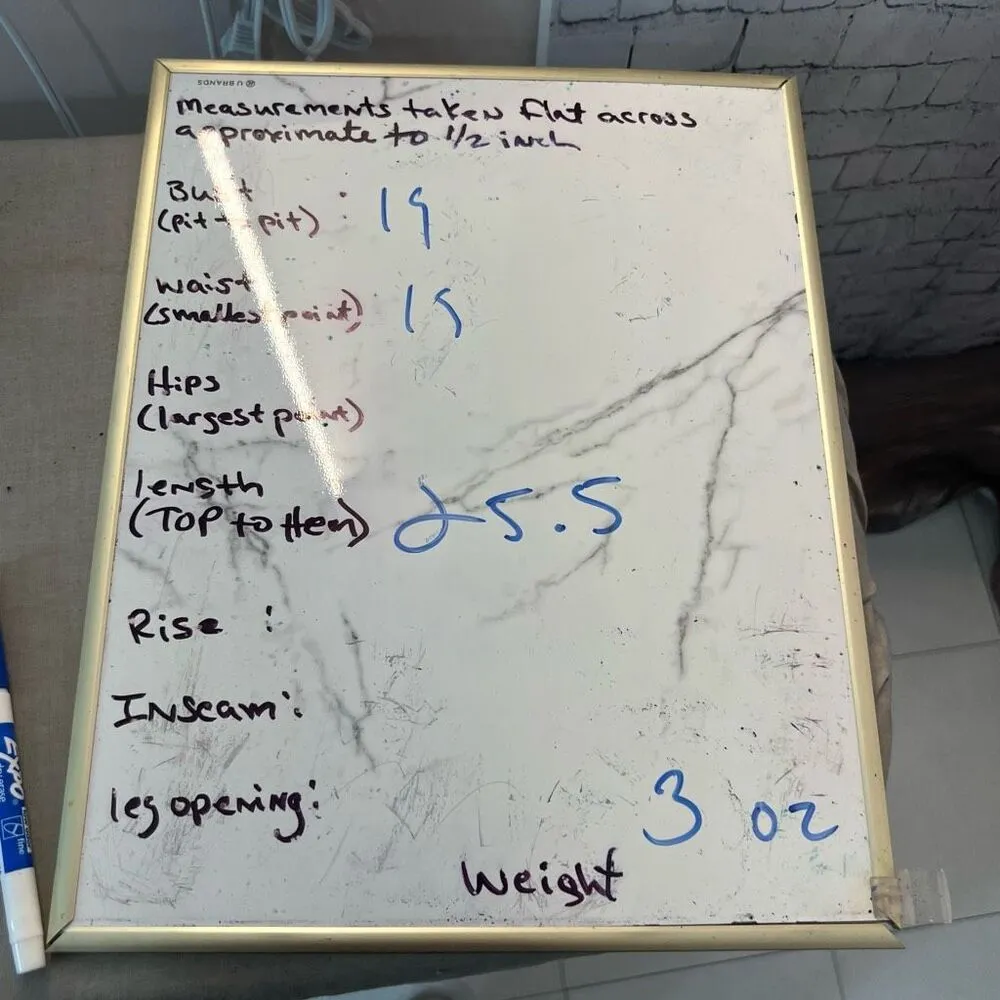 ® U BRANDS
measurements taken flat across
approximate to 1/2 inch
Bust
(pit to pit) : 19
waist
(smallest point)
Hips
(largest point)
length
(TOP to Hem) 25.5
Rise :
Inseam :
leg opening :
3 oz
Weight
EXPO
dry erase
fine